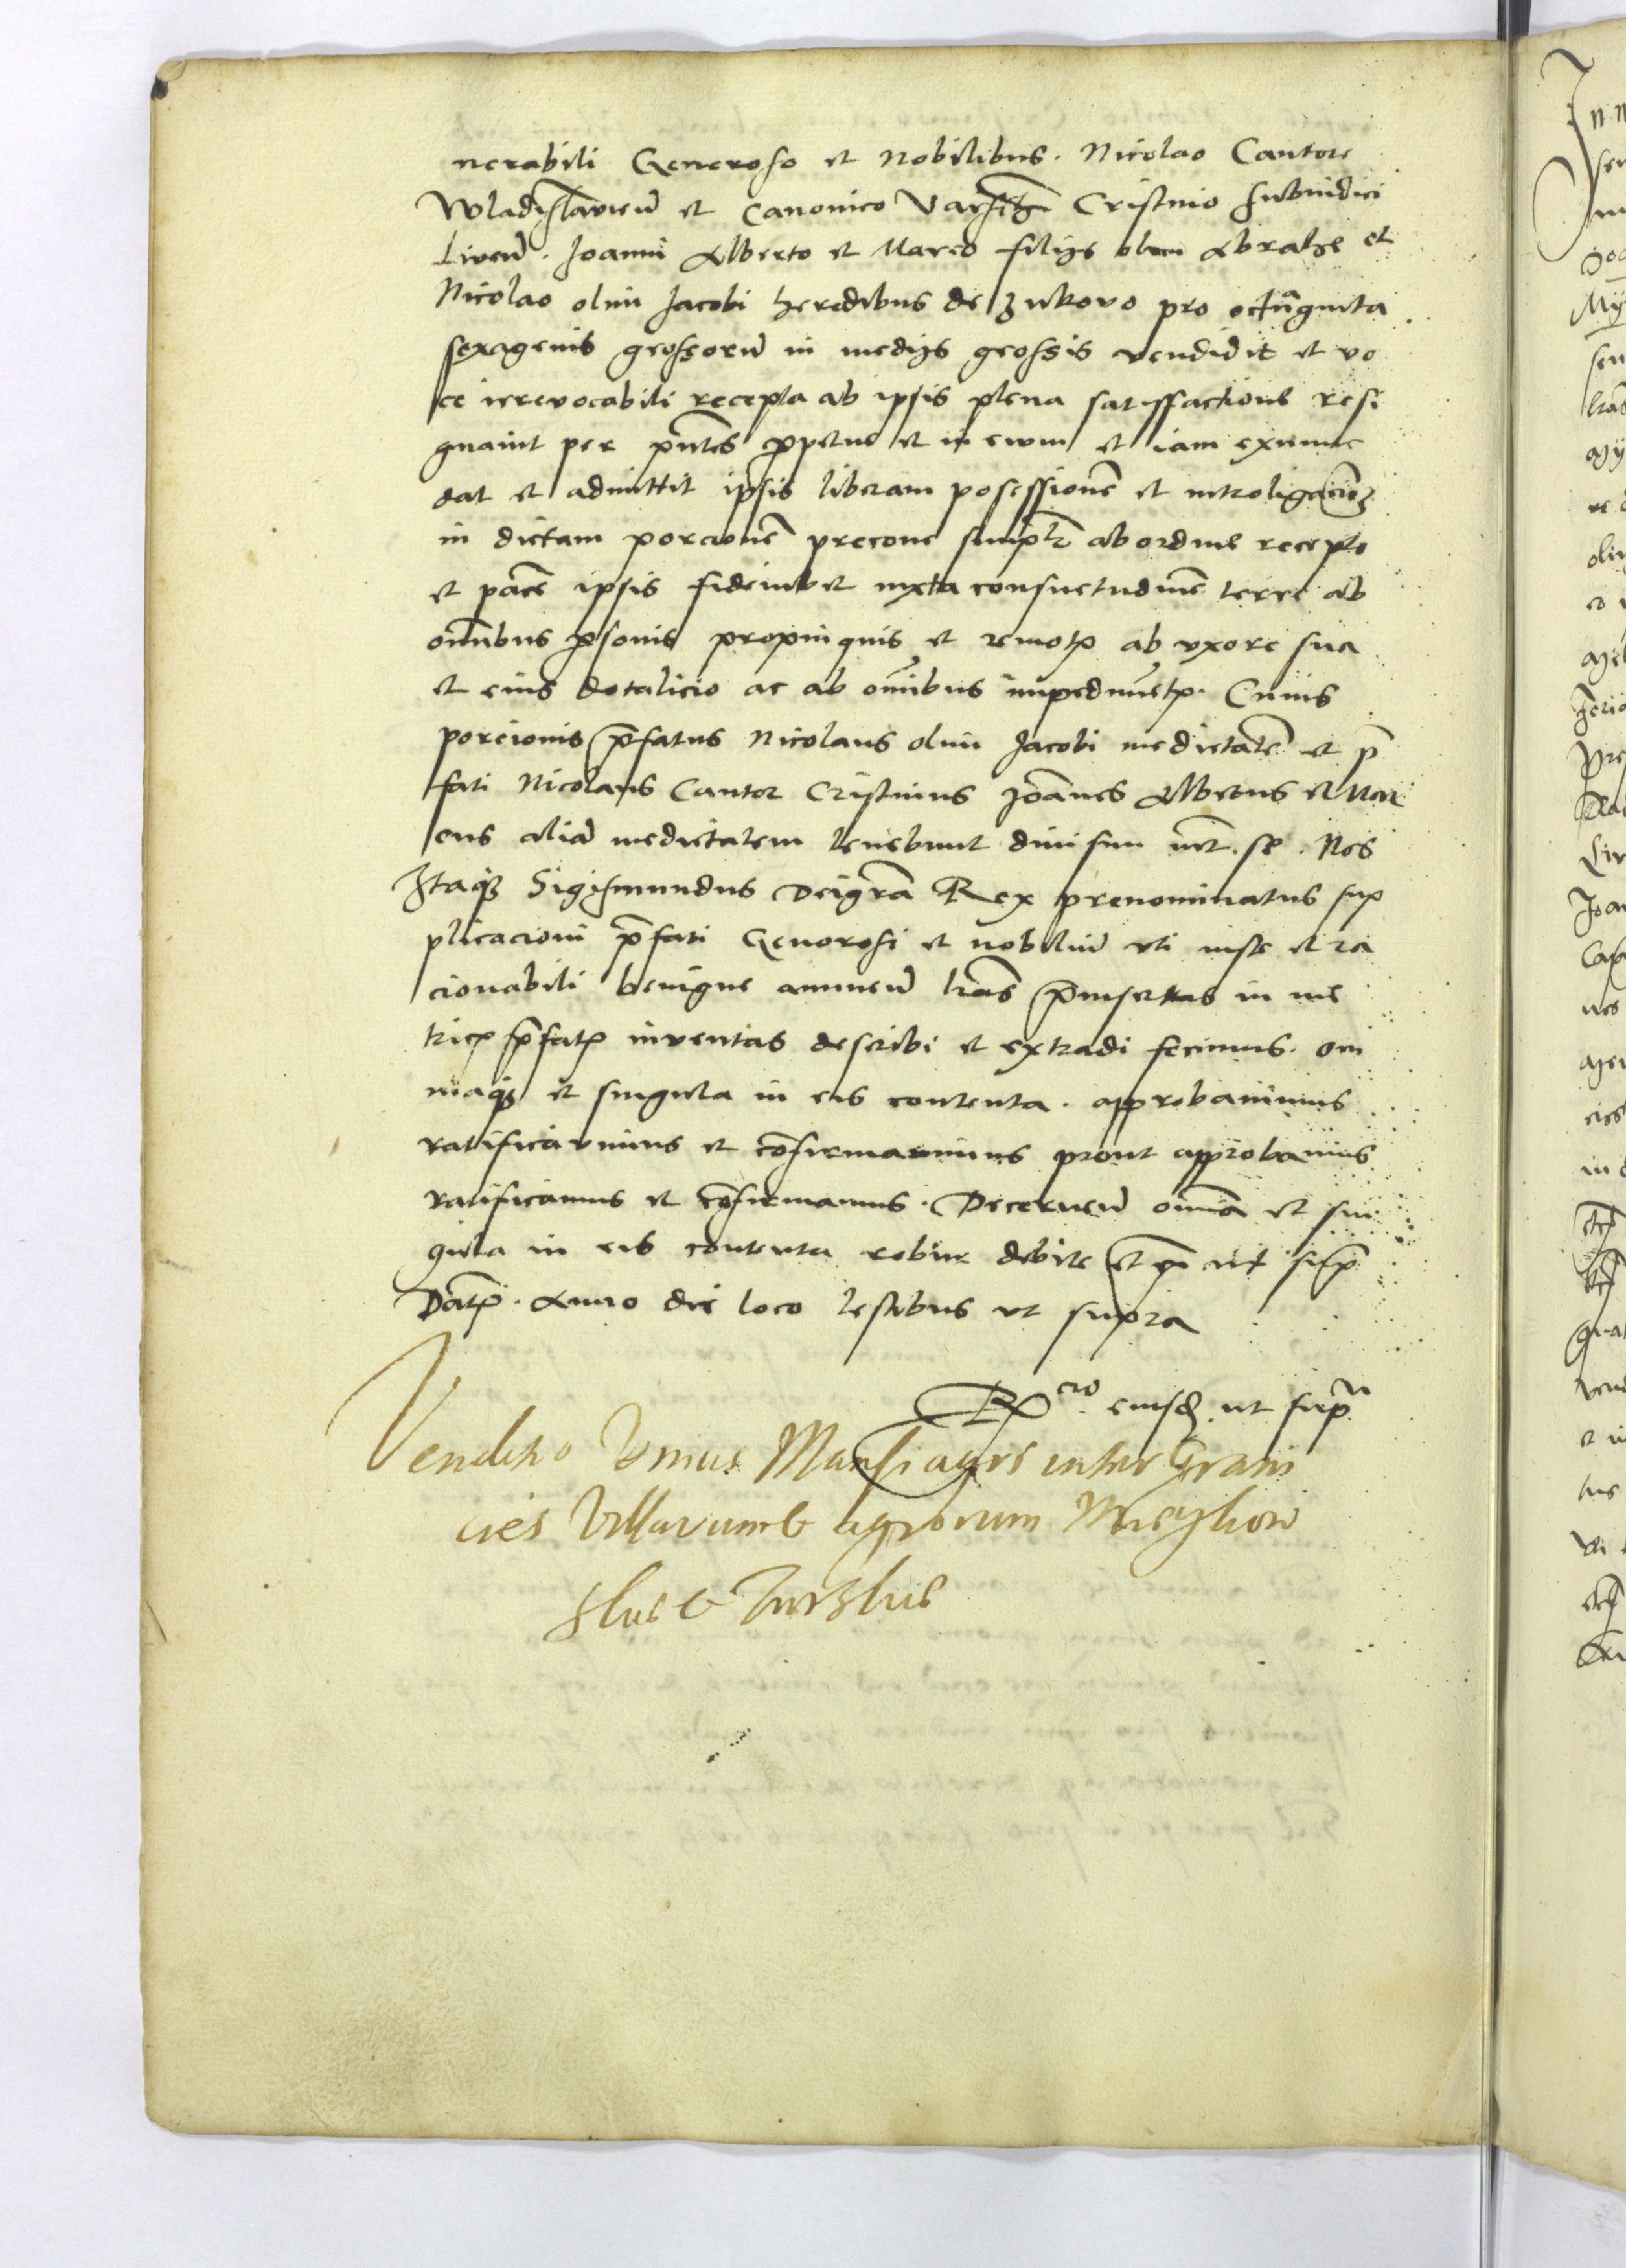 nerabili Generoso et Nobilibus. Nicolao Cantore
Wladislavien̄ et Canonico Cristino Subiudici
Liven̄. Joanni Alberto et Marco filijs olim Abrahe et
Nicolao olim Jacobi heredibus de Zukovo pro
sexagenis grossorū in medijs grossis vendidit et vo
ce irrevocabili recepta ab ipsis plena satisffactione resi
gnavit per pn̄tes ꝑpetue et in ewm et iam exnunc
dat et admittit ipsis liberam posessionē et
in dictam porcionē precone simplr̄ ab ordine recepto
et pacē ipsis fideiubet iuxta consuetudinē terre ab
om̄ibus ꝑsonis propinquis et remotꝭ ab vxore sua
et eius dotalicio ac ab om̄ibus impedimētꝭ. Cuius
porcionis p̄fatus Nicolaus olim Jacobi medietatē et p̄
fati Nicolaus Cantor Cristinus Joānes Albertus et Mar
cus aliā medietatem tenebunt divisim int̄. se. Nos
Itaqꝫ Sigismundus Dei gr̄a Rex prenominatus sup
plicacioni p̄fati Generosi et nobiliū vti iuste et ra
cionabili benigne annuen̄ lr̄as p̄insertas in me
tricꝭ p̄fatꝭ inventas describi et extradi fecimus. om
niaqꝫ et singula in eis contenta. approbavimus
ratificavimus et cōfirmavimus prout approbamus
ratificamus et cōfirmamus. Decernen̄ om̄ia et sin
gula in eis contenta robur debite et ut sup̄
Datꝭ. Anno die loco testibus ut supra
Rᵉˡᵃᶜⁱᵒ eiusdꝫ ut supᵃ
Venditio Vnius Mansi agri inter Grani
cies Villarum & agrorum